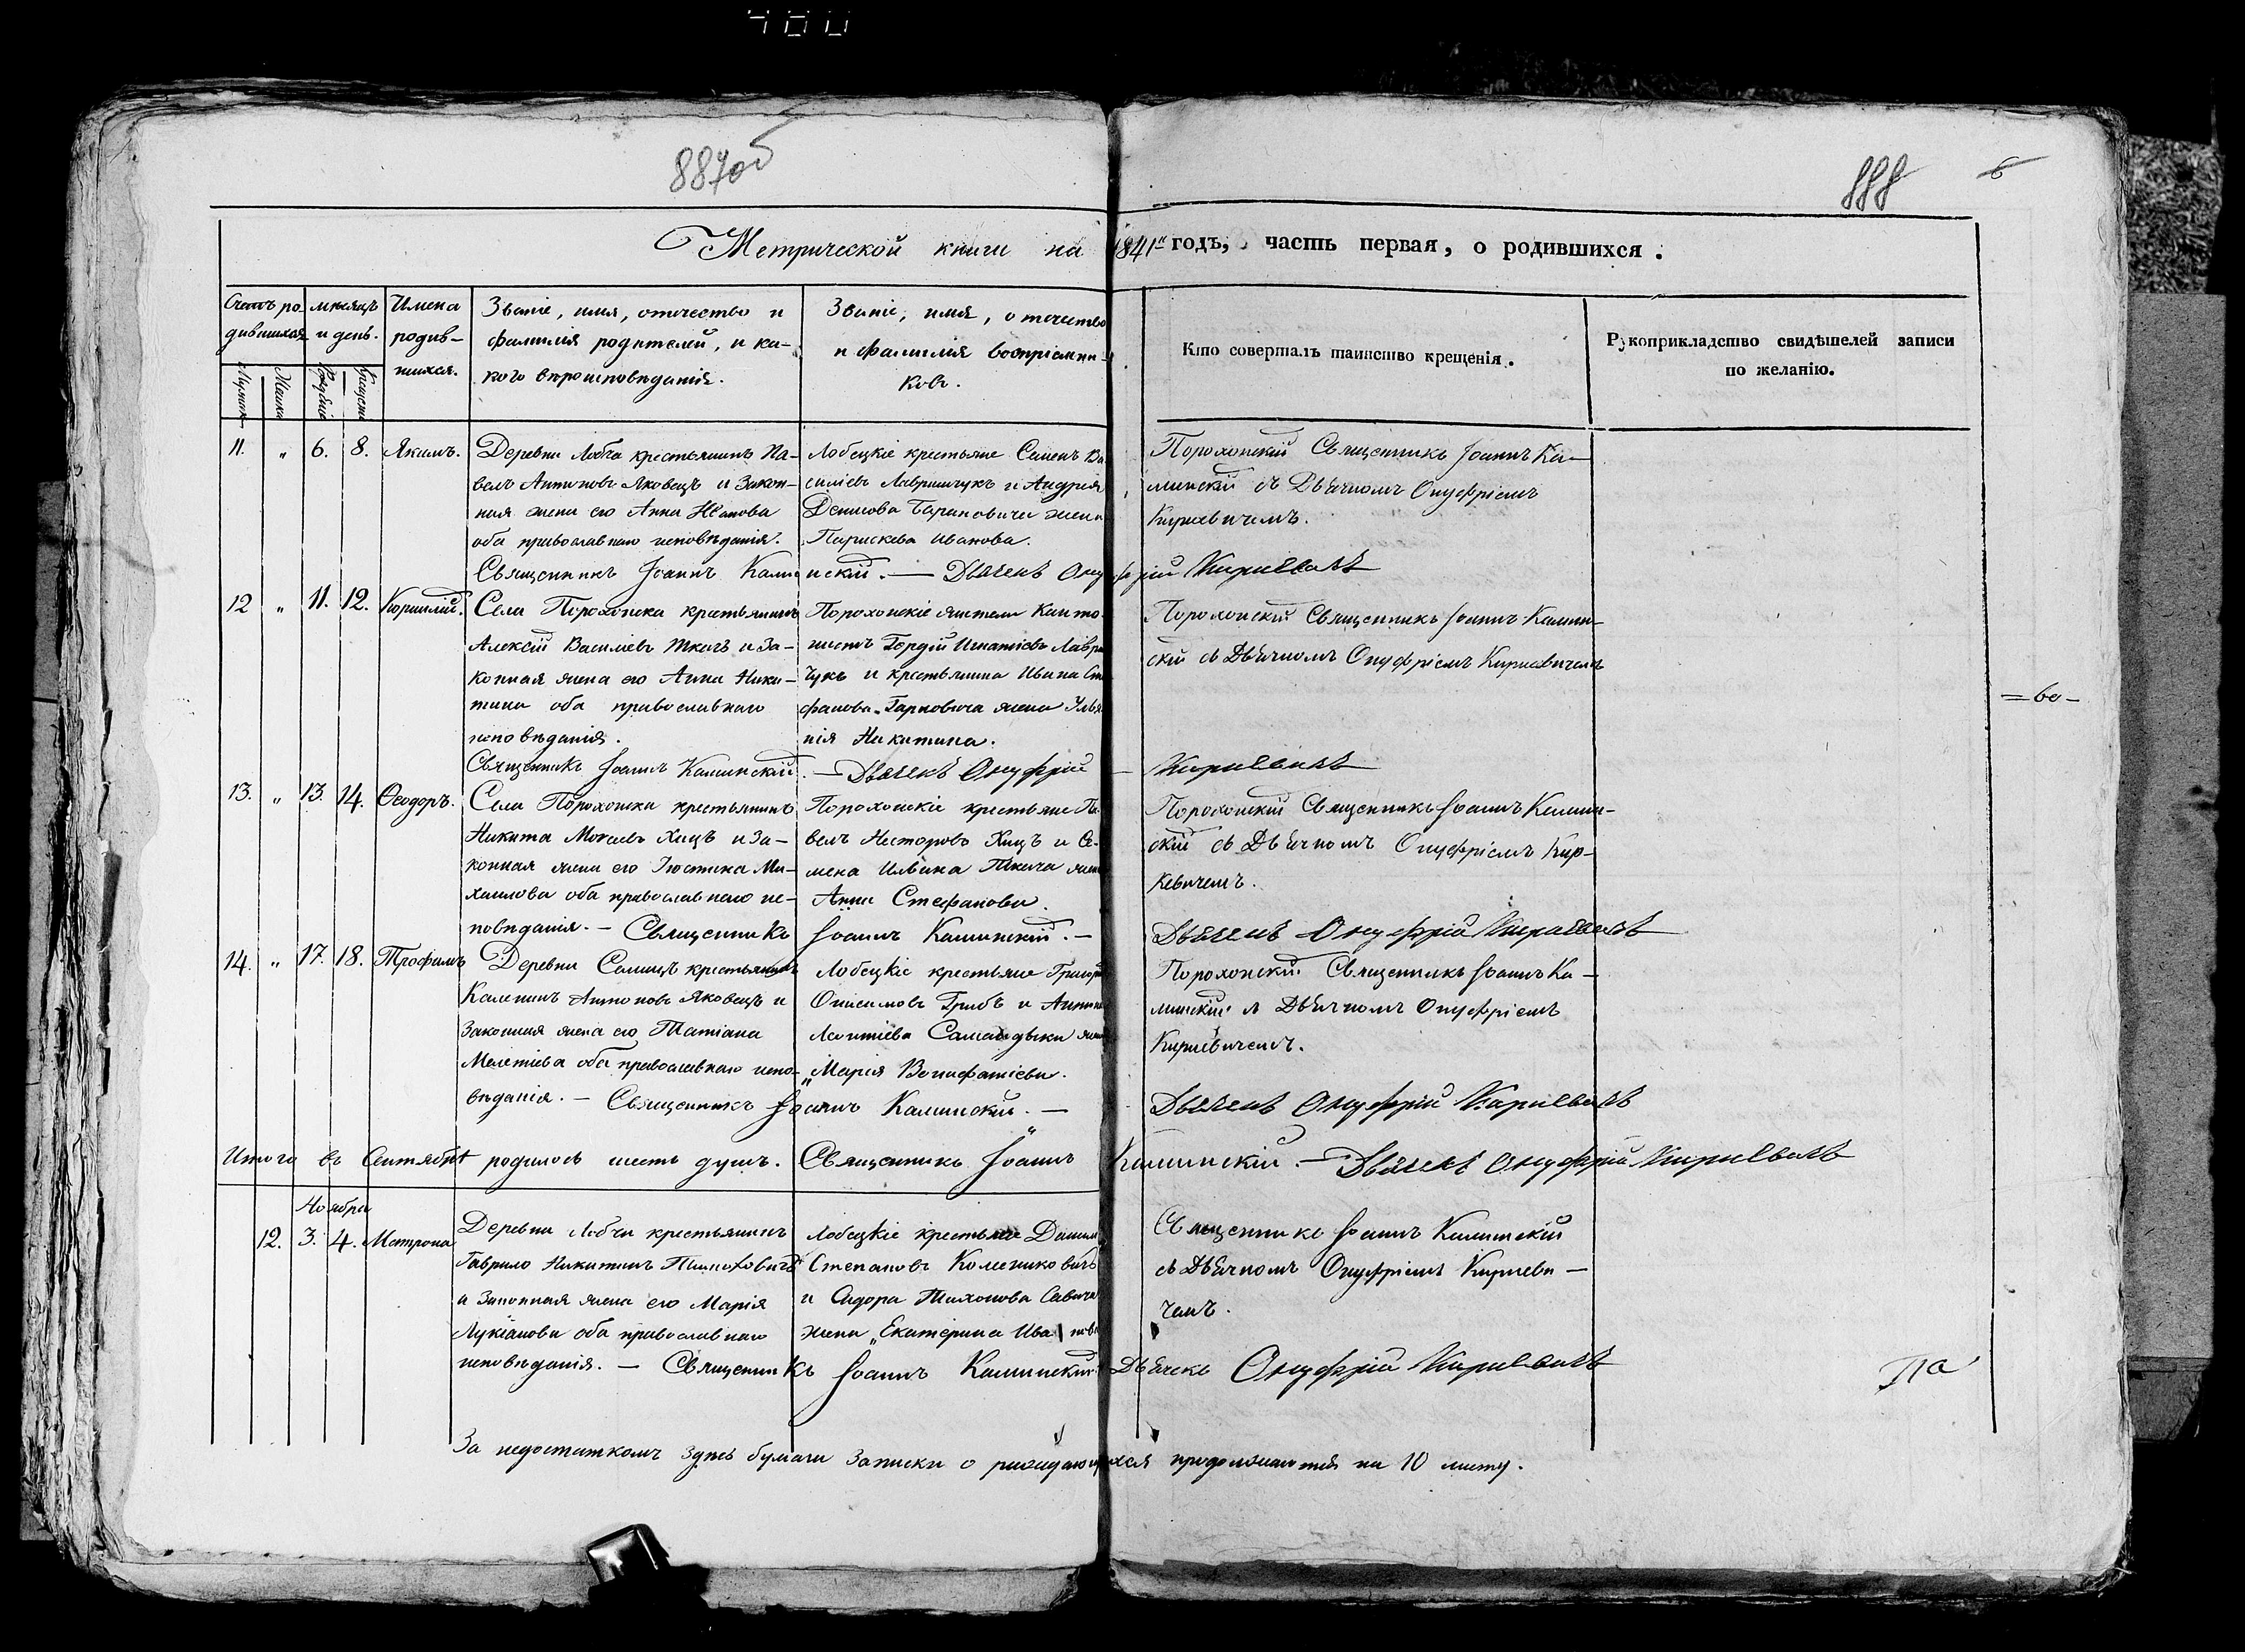 400
887об
888
6
Метрической книги на 1841й годъ, часть первая, о родившихся.
Счетъ ро-
дившихся
мѣсяцъ
и день.
Имена
родив-
шихся.
Званіе, имя, отчество и
фамилія родителей, и ка-
кого вѣроисповѣданія.
Званіе, имя, отчество
и фамилія воспріемни-
ковъ.
Кто совершалъ таинство крещенія.
Рукоприкладство свидѣтелей записи
по желанію.
11. " 6. 8. Якимъ.
Деревни Лобча крестьянинъ Па-
велъ Антоновъ Яковецъ и закон-
ная жена его Анна Иванова
оба православнаго исповѣданія.
Лобецкіе крестьяне Семенъ Ва
силіевъ Лавринчукъ и Андрея
Денисова Барановича жена
Парискева Иванова.
Порохонскій Священникъ Іоаннъ Ка-
минскій съ Дьячкомъ Онуфріемъ
Киркевичемъ.
Священникъ Іоаннъ Каминскій. — Дьячекъ Онуфрій
12 " 11. 12. Корнилій.
Села Порохонска крестьянинъ
Алексій Василіевъ Ткачъ и за-
конная жена его Анна Ники-
тина оба православнаго
исповѣданія.
Порохонскіе жители Канто-
нистъ Гордій Игнатіевъ Лаври
чукъ и крестьянина Ивана Сте
фанова Гарковича жена Улья
нія Никитина.
Порохонскій Священникъ Іоаннъ Камин-
скій съ Дьячкомъ Онуфріемъ Киркевичемъ
=60-
Священникъ Іоаннъ Каминскій. — Дьячекъ Онуфрій
13. " 13. 14. Ѳеодоръ.
Села Порохонска крестьянинъ
Никита Мокеевъ Хицъ и за-
конная жена его Іюстина Ми-
хаилова оба православнаго ис-
повѣданія. — Священникъ Іоаннъ Каминскій. —
Порохонскіе крестьяне Па-
велъ Несторовъ Хицъ и Се-
мена Ильина Ткача жена
Анна Стефанова.
Порохонскій Священникъ Іоаннъ Камин-
скій съ Дьячкомъ Онуфріемъ Кир-
кевичемъ.
Дьячекъ Онуфрій
14. " 17. 18. Трофимъ
Деревни крестьянинъ
Антоновъ Яковецъ и
законная жена его Татіана
Мелетіева оба православнаго испо-
вѣданія. — Священникъ Іоаннъ Каминскій. —
Лобецкіе крестьяне Григорій
Онисимовъ Грибъ и
Леонтіева жена
Марія Вонифатіева.
Порохонскій Священникъ Іоаннъ Ка-
минскій съ Дьячкомъ Онуфріемъ
Киркевичемъ.
Дьячекъ Онуфрій
Итого въ Сентябрѣ родилось шесть душъ. Священникъ Іоаннъ Каминскій. — Дьячекъ Онуфрій
Ноября
12. 3. 4. Матрона
Деревни Лобчи крестьянинъ
Гаврило Никитинъ
и законная жена его Марія
Лукіанова оба православнаго
исповѣданія. — Священникъ Іоаннъ Каминскій
Лобецкіе крестьяне Данило
Степановъ Колесниковичъ
и Сидора Тихонова Савича
жена Екатерина Иванова
Священникъ Іоаннъ Каминскій
съ Дьячкомъ Онуфріемъ Киркеви-
чемъ.
Дьячекъ Онуфрій
Па
За недостаткомъ здѣсь бумаги записки о рождающихся продолжаются на 10 листу.